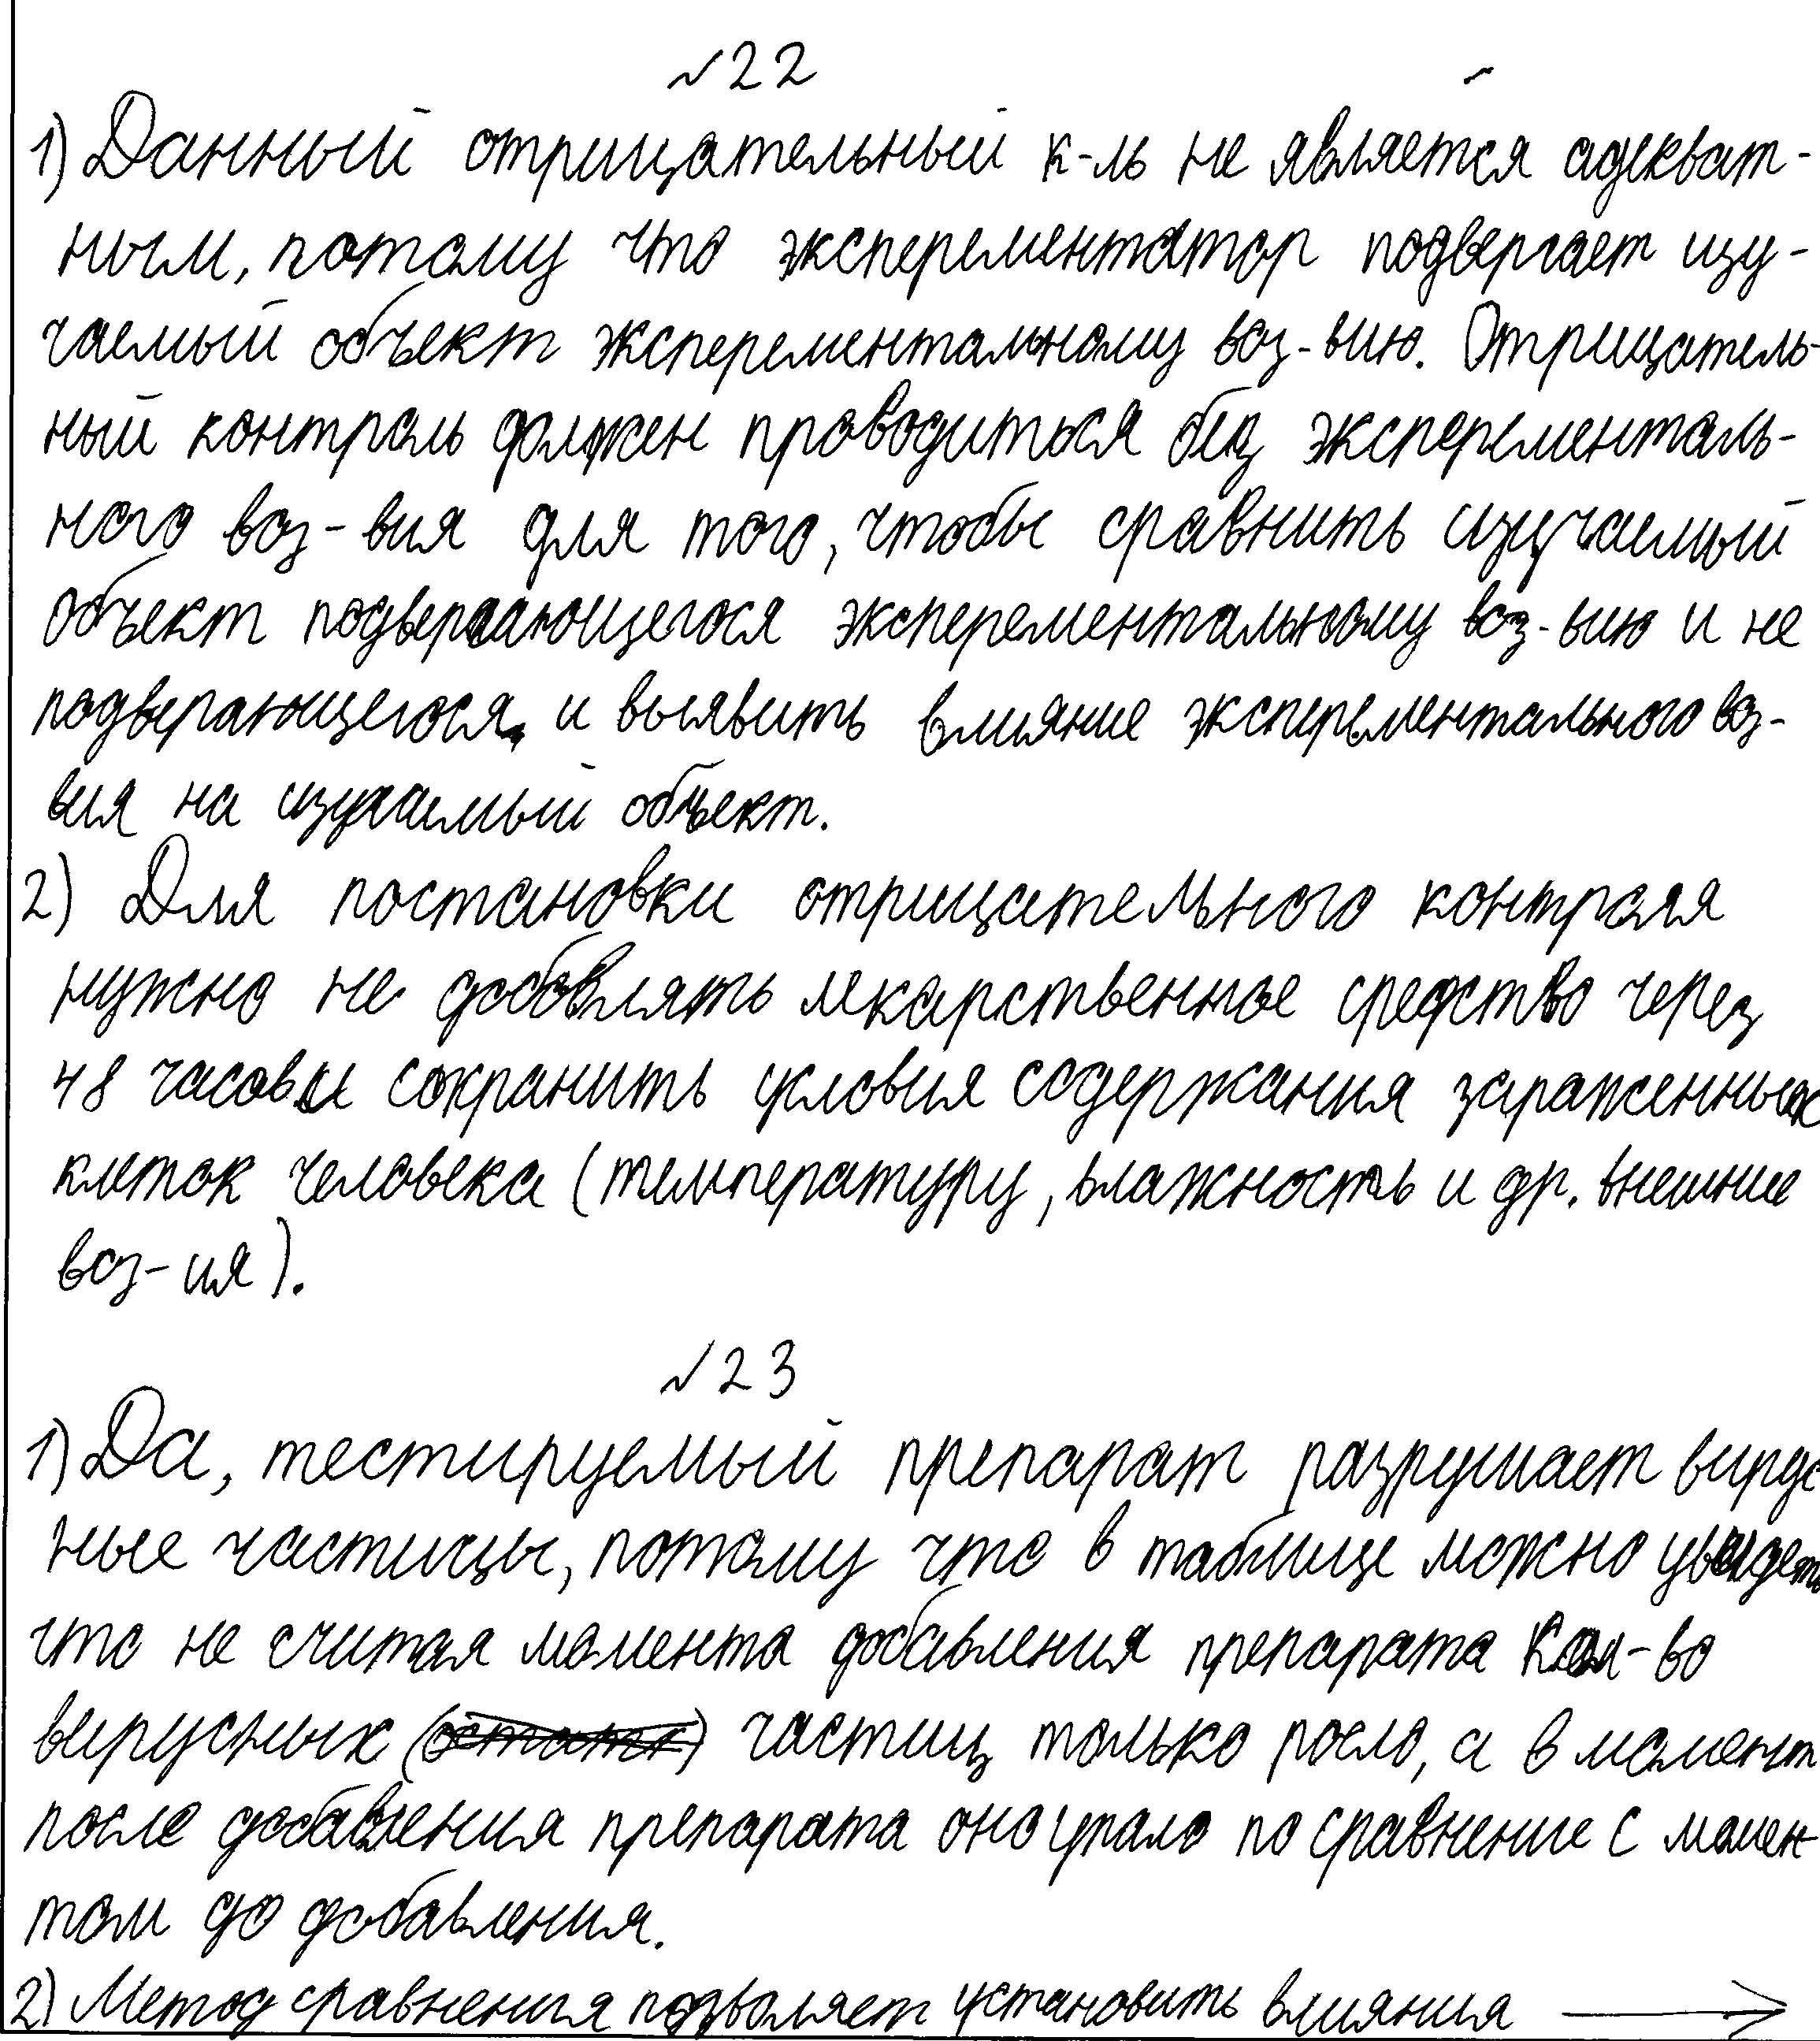 №22
1) Данный отрицательный к-ль не является адекват-
ным, потому что эксперементатор подвергает изу-
чаемый объект эксперементальному воз-вию. Отрицатель-
ный контроль должен проводиться без эксперименталь-
ного воз-вия для того, чтобы сравнить изучаемый
объект подвергающегося эксперементальному воз-вию и не
подвергающегося, и выявить влияние эксперементального воз-
вия на изучаемый объект.
2) Для постановки отрицательного контроля
нужно не добавлять лекарственное средство через
48 часов и сохранить условия содержания зараженных
клеток человека (температуру, влажность и др. внешние
воз-ия).
№23
1) Да, тестируемый препарат разрушает вирус
ные частицы, потому что в таблице можно увидеть
что не считая момента добавления препарата кол-во
вирусных частиц только росло, а в момент
после добавления препарата оно упало по сравнение с момен
том до добавления.
2) Метод сравнения позволяет установить влияния →